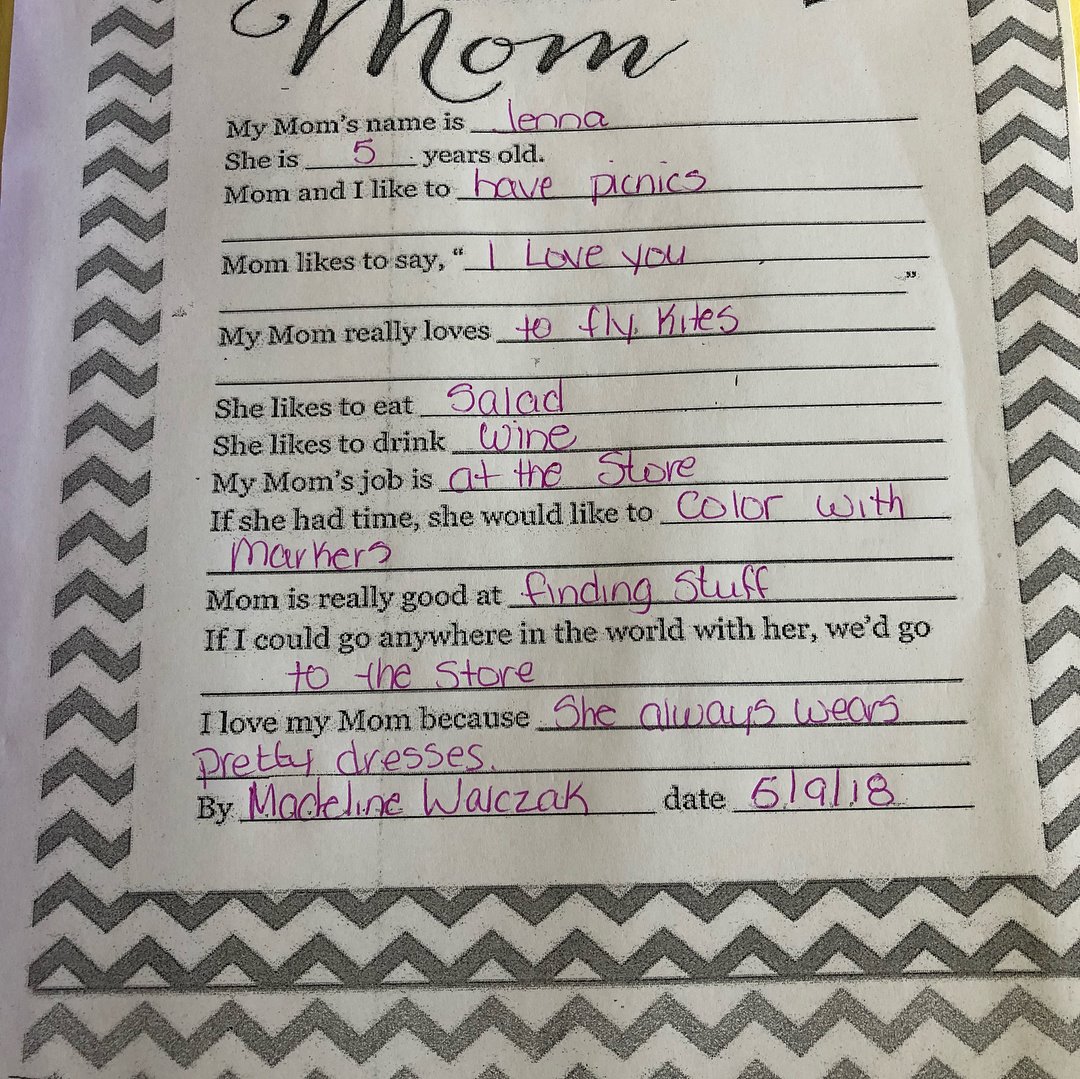 Mom
My Mom's name is Jenna
She is 5 years old.
Mom and I like to have picnics
Mom likes to say, “ I Love you
”
My Mom really loves to fly kites
She likes to eat Salad
She likes to drink wine
My Mom's job is at the Store
If she had time, she would like to color with
markers
Mom is really good at finding Stuff
If I could go anywhere in the world with her, we'd go
to the Store
I love my Mom because She always wears
pretty dresses.
By Madeline Walczak date 5/9/18